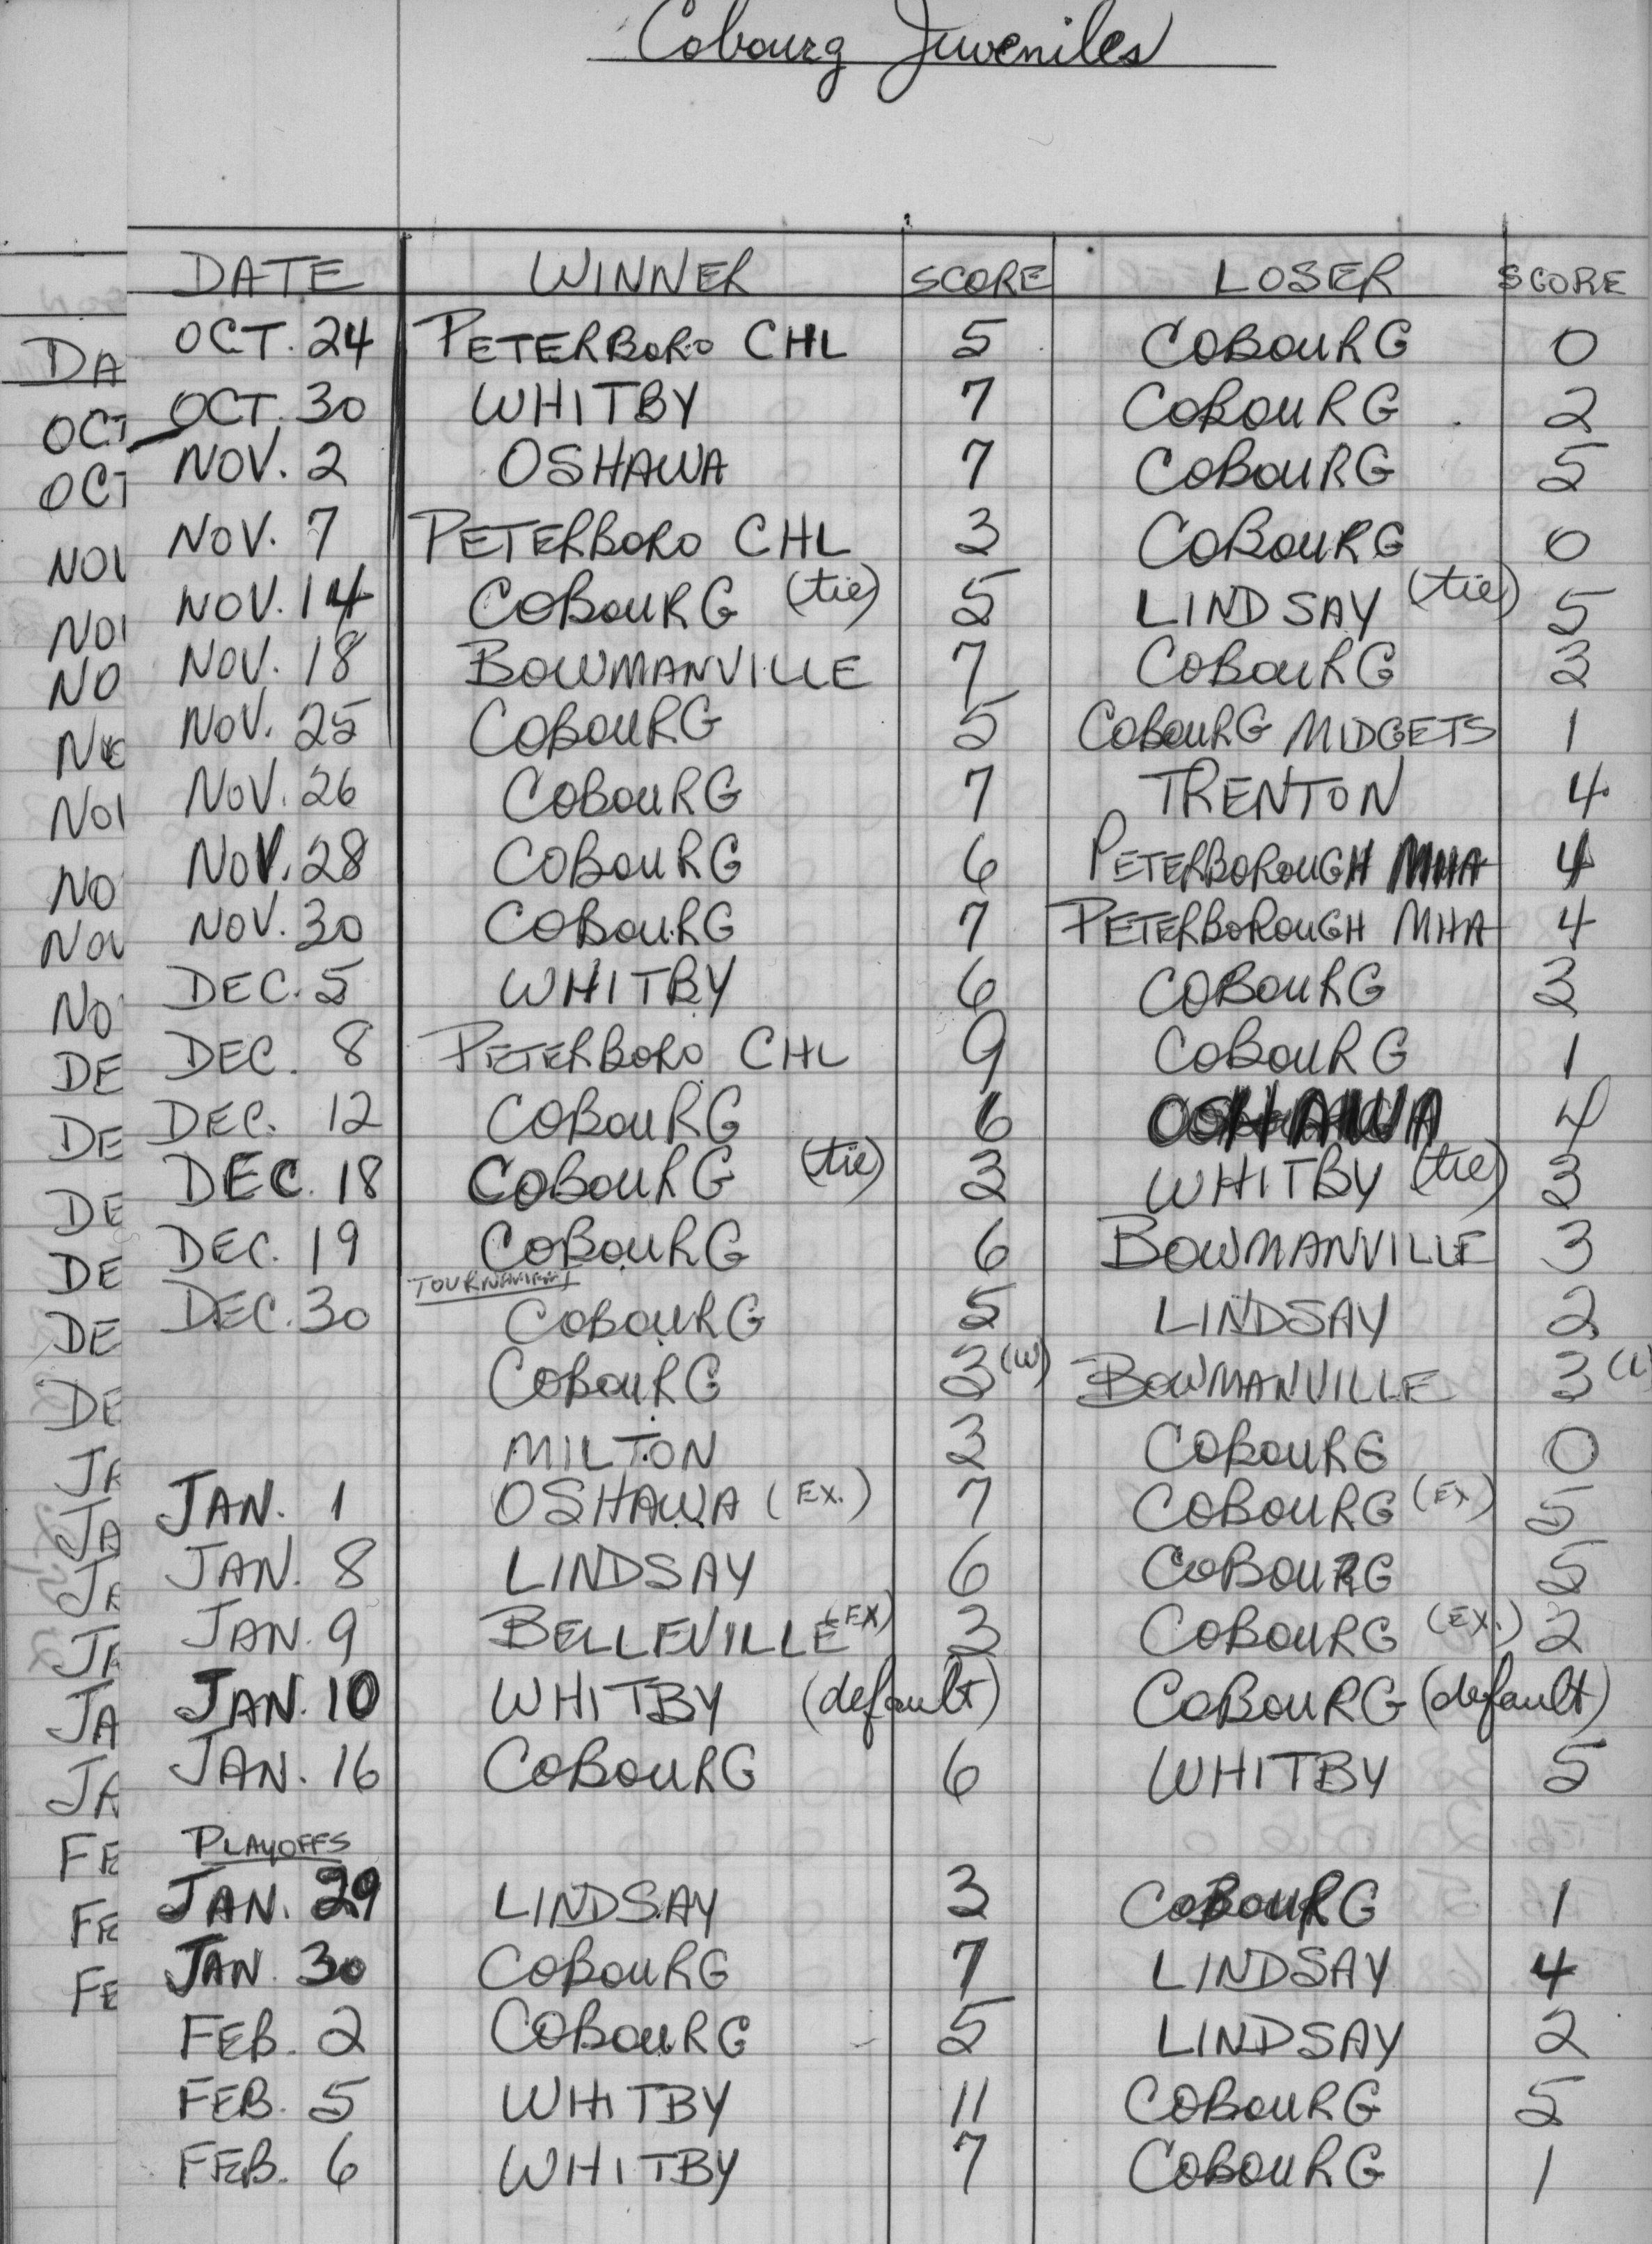 Cobourg Juveniles
DATE WINNER SCORE LOSER SCORE
OCT. 24 PETERBORO CHL 5 COBOURG 0
OCT. 30 WHITBY 7 COBOURG 2
NOV. 2 OSHAWA 7 COBOURG 5
NOV. 7 PETERBORO CHL 3 COBOURG 0
NOV. 14 COBOURG (tie) 5 LINDSAY (tie) 5
NOV. 18 BOWMANVILLE 7 COBOURG 3
NOV. 25 COBOURG 5 COBOURG MIDGETS 1
NOV. 26 COBOURG 7 TRENTON 4
NOV. 28 COBOURG 6 PETERBOROUGH MHA 4
NOV. 30 COBOURG 7 PETERBOROUGH MHA 4
DEC. 5 WHITBY 6 COBOURG 3
DEC. 8 PETERBORO CHL 9 COBOURG 1
DEC. 12 COBOURG 6 OSHAWA 4
DEC. 18 COBOURG (tie) 3 WHITBY (tie) 3
DEC. 19 COBOURG 6 BOWMANVILLE 3
TOURNAMENT
DEC. 30 COBOURG 5 LINDSAY 2
COBOURG 3 (W) BOWMANVILLE 3 (L
MILTON 3 COBOURG 0
JAN. 1 OSHAWA (EX.) 7 COBOURG (EX) 5
JAN. 8 LINDSAY 6 COBOURG 5
JAN. 9 BELLEVILLE (EX) 3 COBOURG (EX.) 2
JAN. 10 WHITBY (default) COBOURG (default)
JAN. 16 COBOURG 6 WHITBY 5
PLAYOFFS
JAN. 29 LINDSAY 3 COBOURG 1
JAN. 30 COBOURG 7 LINDSAY 4
FEB. 2 COBOURG 5 LINDSAY 2
FEB. 5 WHITBY 11 COBOURG 5
FEB. 6 WHITBY 7 COBOURG 1